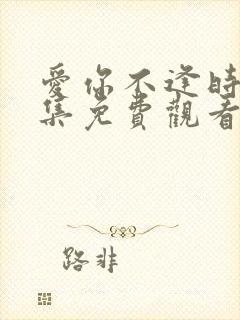 愛你不逢時
集免費觀看
路非